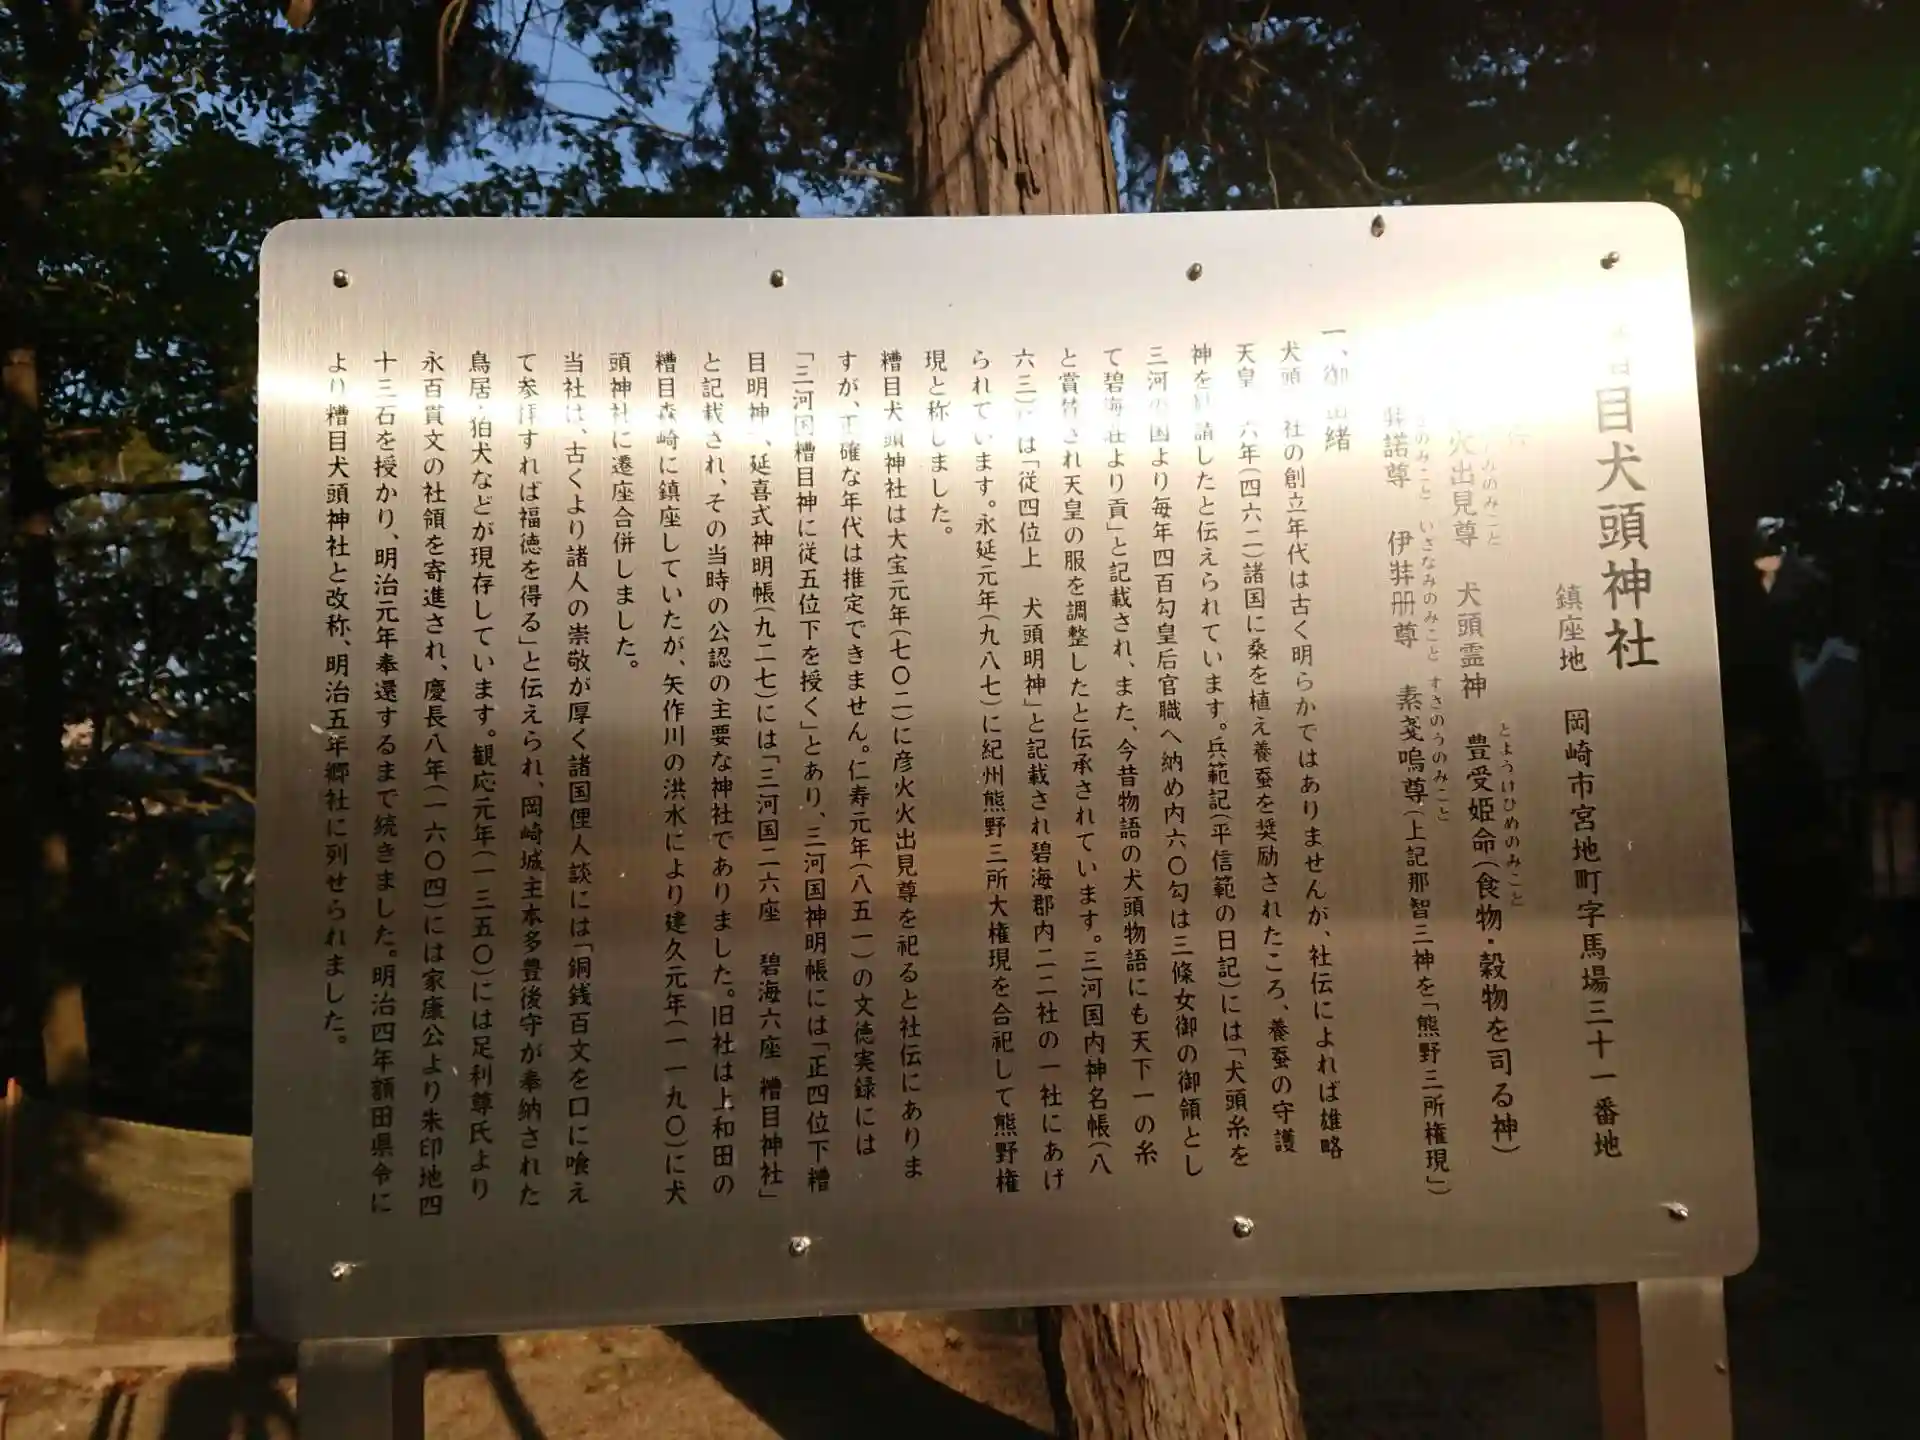 目犬頭神社
鎮座地　岡崎市宮地町字馬場三十一番地
とようけひめのみこと
火出見尊　犬頭霊神　豊受姫命(食物・穀物を司る神)
のみこと　いざなみのみこと　すさのうのみこと
弉諾尊　伊弉册尊　素戔嗚尊(上記那智三神を「熊野三所権現」)
一、御　緒
犬頭　社の創立年代は古く明らかではありませんが、社伝によれば雄略
天皇　六年(四六二)諸国に桑を植え養蚕を奨励されたころ、養蚕の守護
神を　請したと伝えられています。兵範記(平信範の日記)には「犬頭糸を
三河の国より毎年四百勾皇后官職へ納め内六〇勾は三條女御の御領とし
て碧海荘より貢」と記載され、また、今昔物語の犬頭物語にも天下一の糸
と賞賛され天皇の服を調整したと伝承されています。三河国内神名帳(八
六三)には「従四位上　犬頭明神」と記載され碧海郡内二二社の一社にあげ
られています。永延元年(九八七)に紀州熊野三所大権現を合祀して熊野権
現と称しました。
糟目犬頭神社は大宝元年(七〇二)に彦火火出見尊を祀ると社伝にありま
すが、正確な年代は推定できません。仁寿元年(八五一)の文徳実録には
「三河国糟目神に従五位下を授く」とあり、三河国神明帳には「正四位下糟
目明神」、延喜式神明帳(九二七)には「三河国二六座　碧海六座　糟目神社」
と記載され、その当時の公認の主要な神社でありました。旧社は上和田の
糟目森崎に鎮座していたが、矢作川の洪水により建久元年(一一九〇)に犬
頭神社に遷座合併しました。
当社は、古くより諸人の崇敬が厚く諸国俚人談には「銅銭百文を口に喰え
て参拝すれば福徳を得る」と伝えられ、岡崎城主本多豊後守が奉納された
鳥居・狛犬などが現存しています。観応元年(一三五〇)には足利尊氏より
永百貫文の社領を寄進され、慶長八年(一六〇四)には家康公より朱印地四
十三石を授かり、明治元年奉還するまで続きました。明治四年額田県令に
より糟目犬頭神社と改称、明治五年郷社に列せられました。